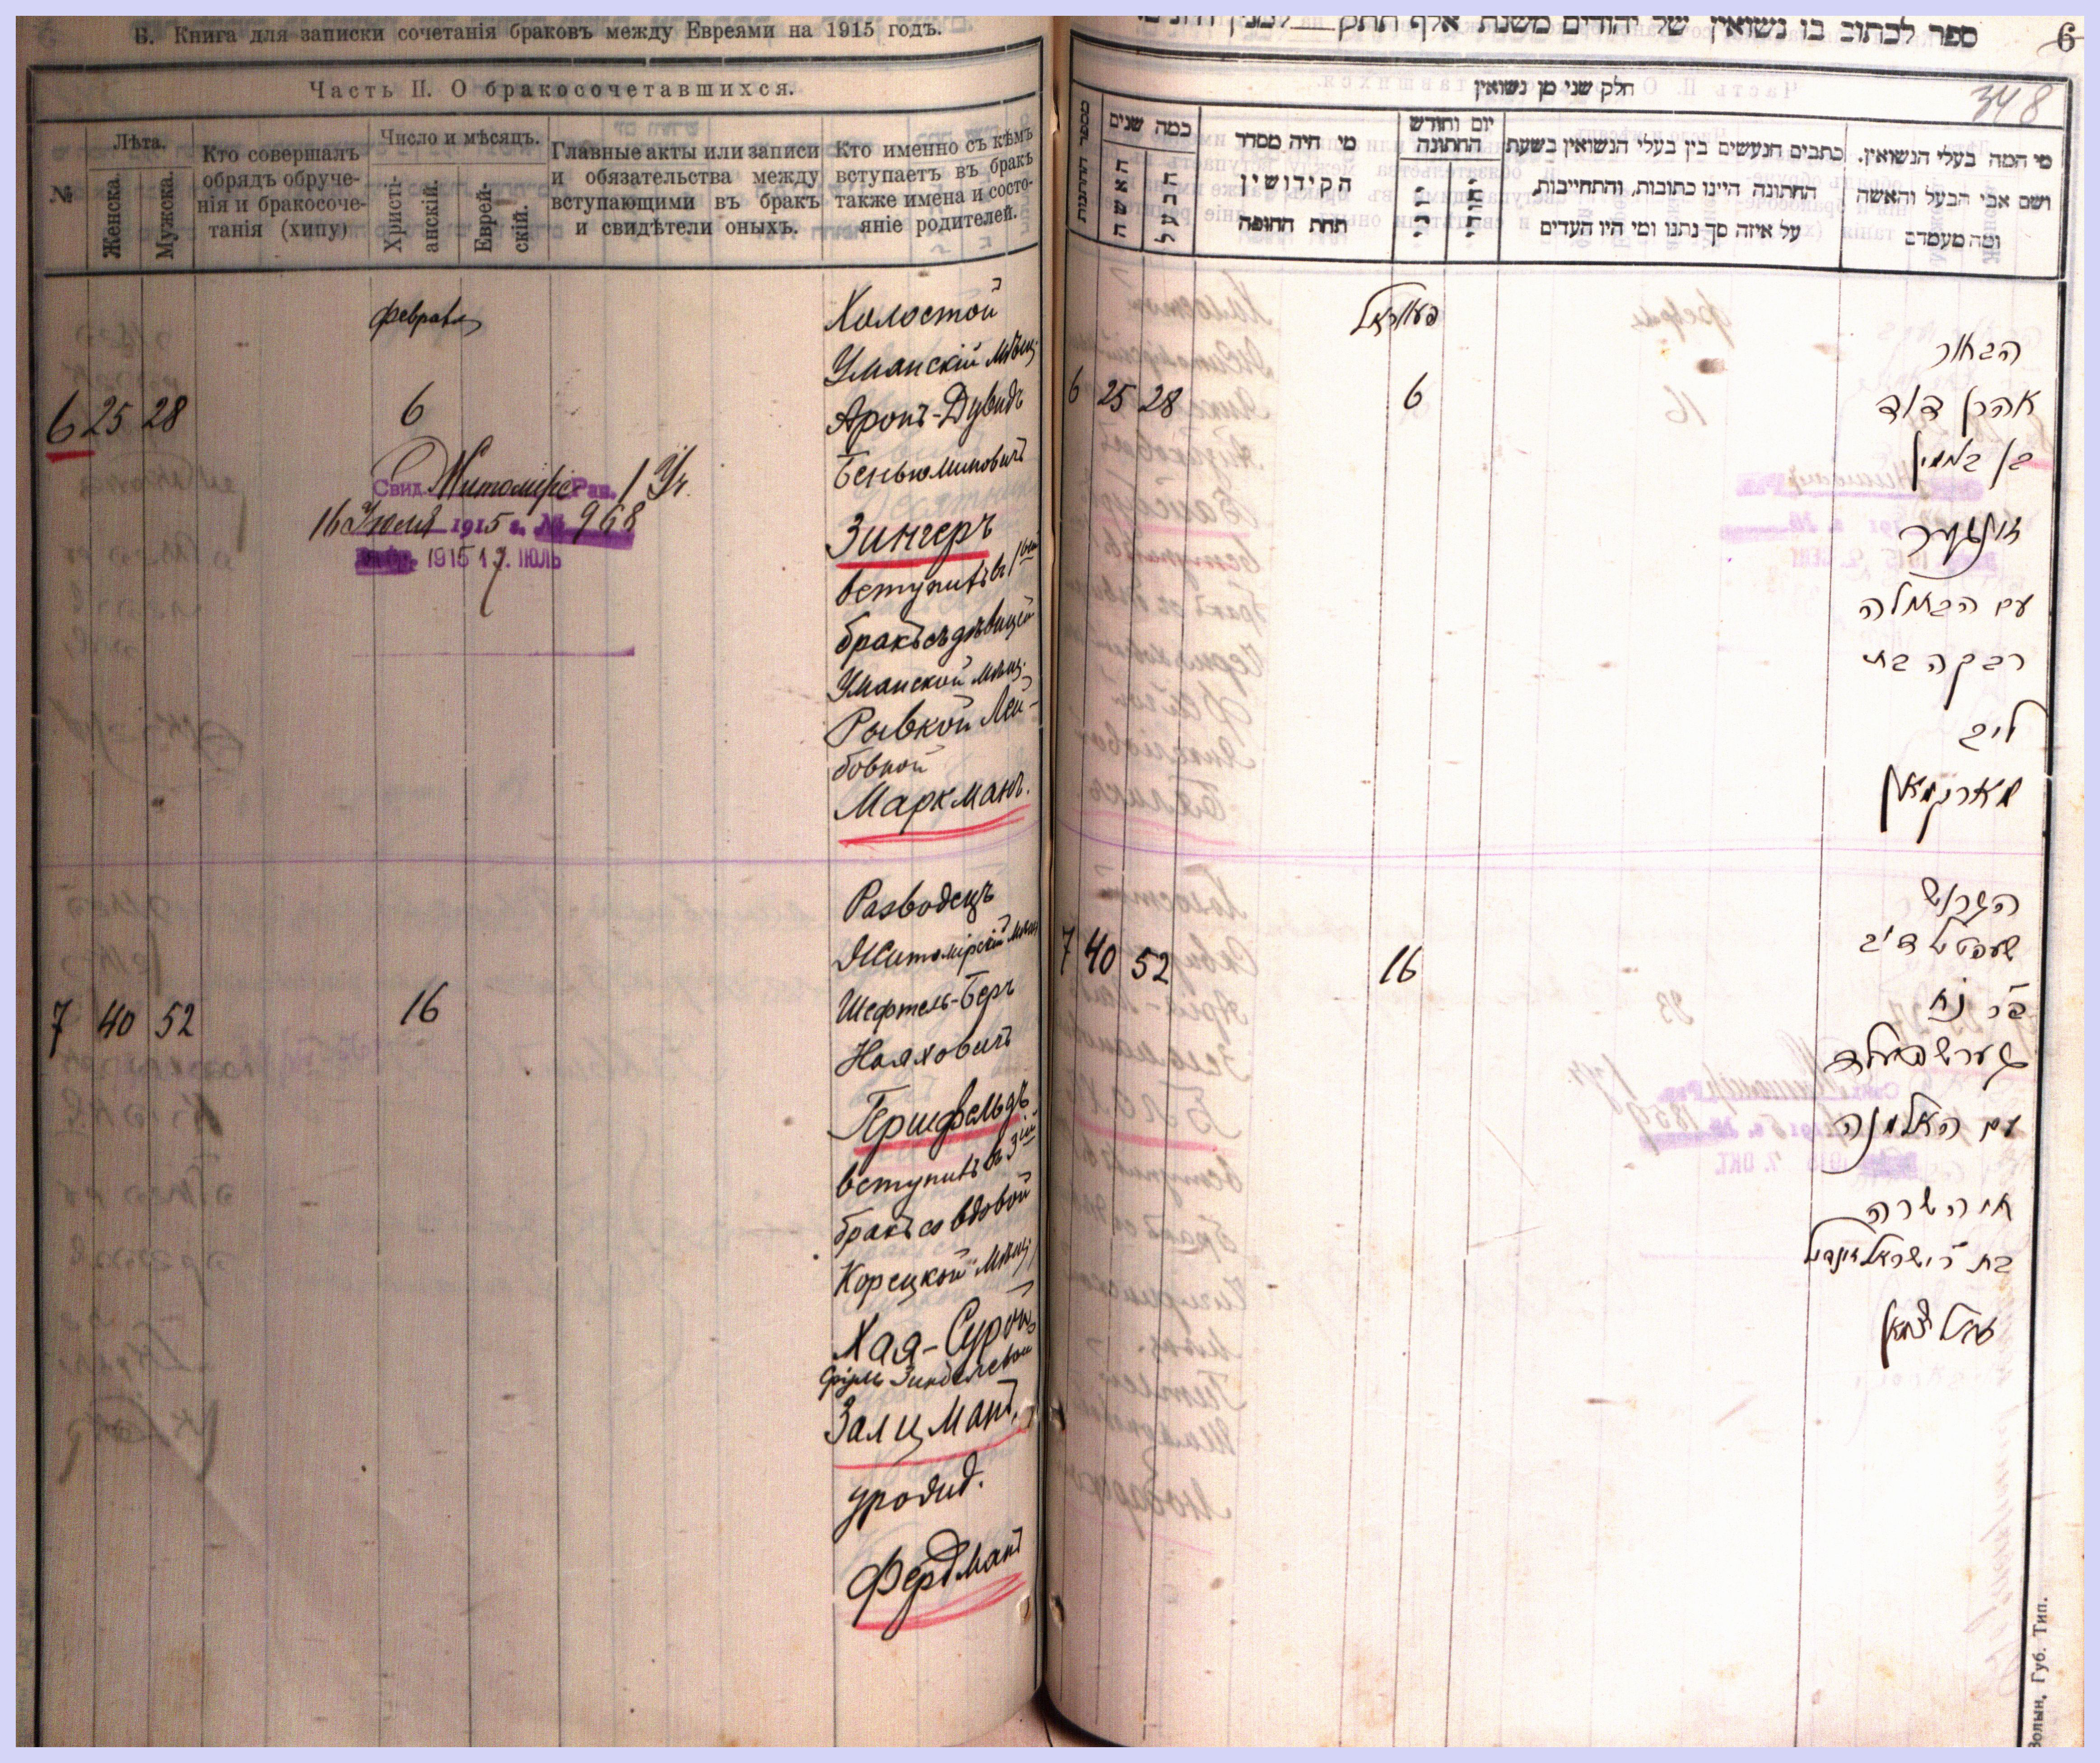 Б. Книга для записки сочетанія браковъ между Евреями на 1915 годъ.
Часть II. О бракосочетавшихся.
№
Лѣта.
Женска.
Мужска.
Кто совершалъ
обрядъ обруче-
нія и бракосоче-
танія (хипу)
Число и мѣсяцъ.
Христі-
анскій.
Еврей-
скій.
Главные акты или записи
и обязательства между
вступающими въ бракъ
и свидѣтели оныхъ.
Кто именно съ кѣмъ
вступаетъ въ бракъ
также имена и состо-
яніе родителей.
февраль
6 25 28
6
Свид. Житомірс Рав. 1 Уч.
16 Июля 1915 г. № 968
1915 17. ІЮЛЬ
Холостой
Уманскій мѣщ.
Аронъ-Дувидъ
Беньюминовичъ
Зингеръ
вступилъ въ 1ый
бракъ съ дѣвицей
Уманской мѣщ.
Рывкой Лей-
бовной
Маркманъ.
7 40 52
16
Разводецъ
Житомірскій мѣщ
Шефтель-Беръ
Нояховичъ
Гершфельдъ
вступилъ въ 3ий
бракъ со вдовой
Корецкой мѣщ.
Хая-Сурой
Сруль Зинделевой
Залцманъ,
урожд.
Фердманъ
ספר לכתוב בו נשואין של יהודים משנת אלף תתק
6
348
חלק שני מן נשואין
מספר החתונות
כמה שנים
האשה
הבעל
מי היה מסדר
הקידושין
תחת החופה
יום וחודש
החתונה
יוני
יהודי
כתבים הנעשים בין בעלי הנשואין בשעת
החתונה היינו כתובות, והתחייבות,
על איזה סך נתנו ומי היו העדים
מי המה בעלי הנשואין.
ושם אבי הבעל והאשה
ומה מעמדם
פעווראל
6 25 28
6
הבחור
אהרן דוד
בן בנימין
זינגער
עם הבתולה
רבקה בת
ליב
מארקמאן
7 40 52
16
הגרוש
שעפטיל
ב״ר נח
גערשפעלד
עם האלמנה
חיה שרה
בת ר׳ ישראל זינדיל
זאלצמאן
Волын. Губ. Тип.